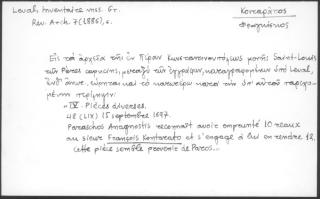 Leval, Inventaire mss. Gr.
Rev. Arch. 7 (1886), σ.
Κονταράτος
Φραγκίσκος
Εἰς τὰ ἀρχεῖα τῆς ἐν Πέραν Κωνσταντινουπόλεως μονῆς Saint-Louis
τῶν Pères capucins, μεταξὺ τῶν ἐγγράφων, καταγραφομένων ὑπὸ Leval,
ἔνθ' ἄνωτ., εὕρηται καὶ τὸ κατωτέρω κατὰ τὴν ὑπ' αὐτοῦ παρεχο-
μένην περίληψιν:
"IV. Pièces diverses.
48 (LIX) 15 septembre 1697.
Paraschos Anagnostis reconnaît avoir emprunté 10 réaux
au sieur François Kontarato et s'engage à lui en rendre 12.
Cette pièce semble provenir de Paros...